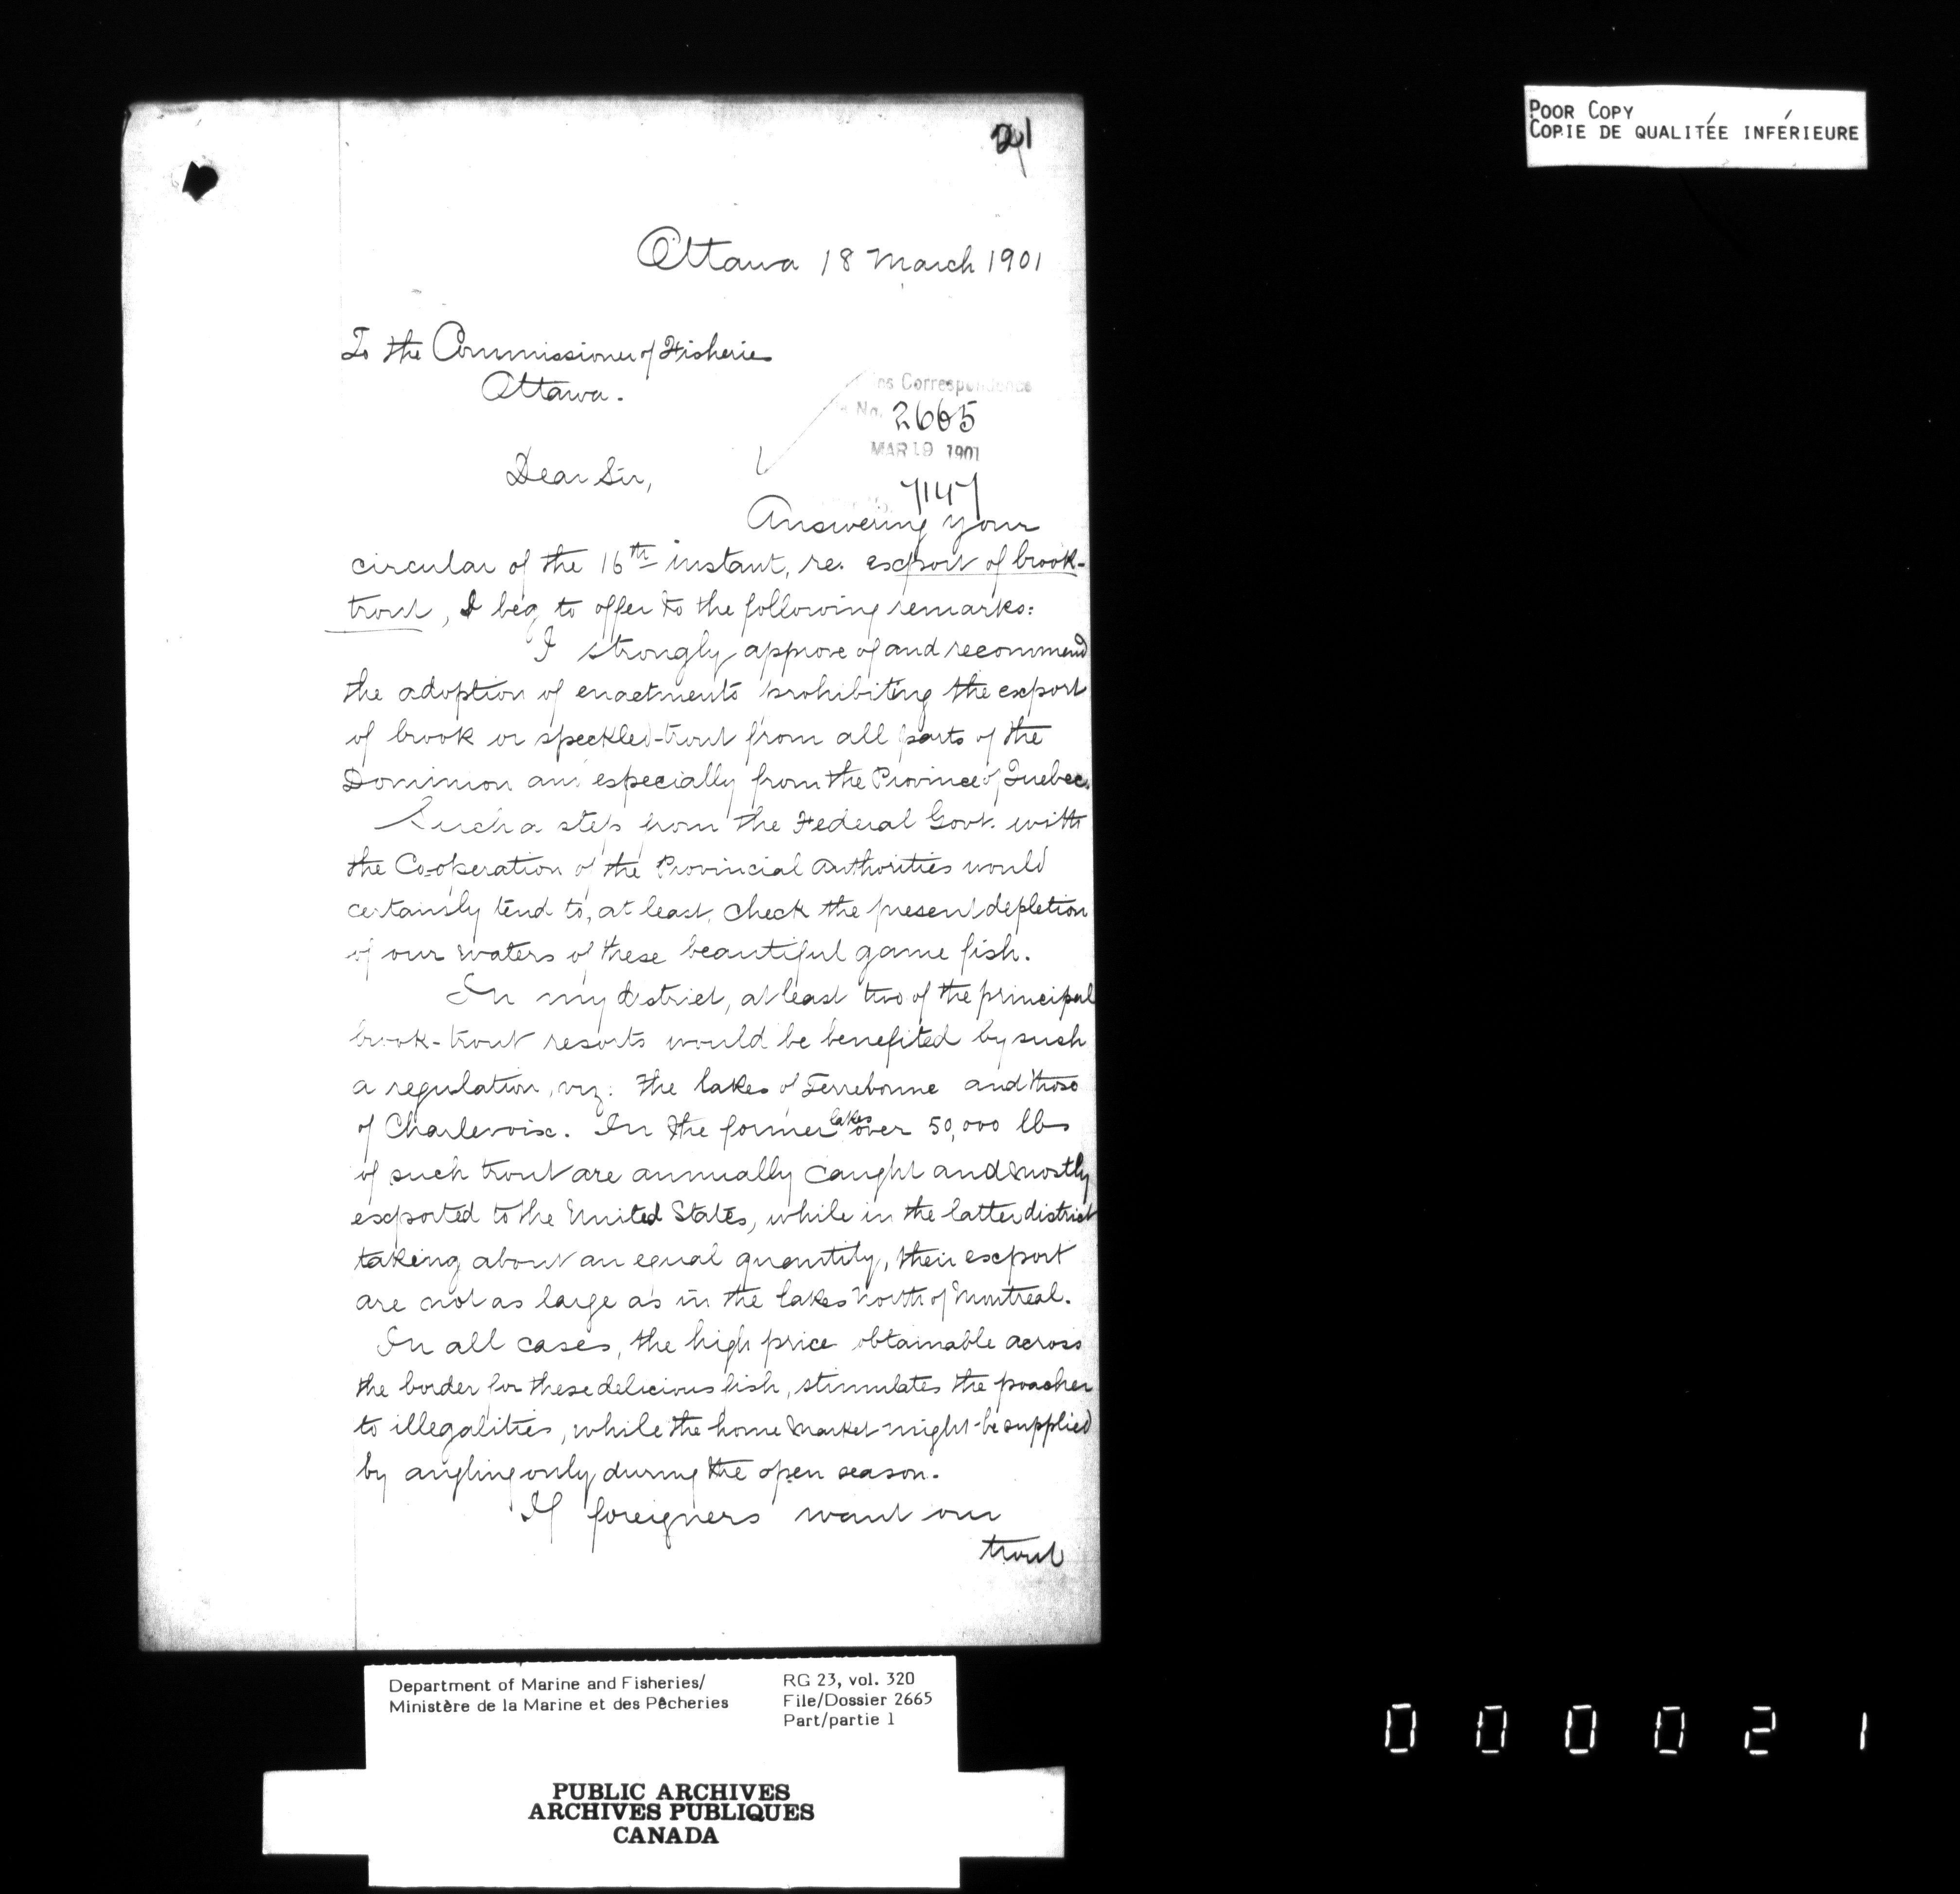 POOR COPY
COPIE DE QUALITÉE INFÉRIEURE
21
Ottawa 18 March 1901
To the Commissioner of Fisheries
Ottawa.
ns Correspondence
No. 2665
MAR 19 1901
7147
Dear Sir,
Answering your
circular of the 16th instant, re. export of brook-
trout, I beg to offer to the following remarks:
I strongly approve of and recommend
the adoption of enactments prohibiting the export
of brook or speckled-trout from all parts of the
Dominion and especially from the Province of Quebec.
Such a step from the Federal Govt. with
the Co-operation of the Provincial Authorities would
certainly tend to, at least, check the present depletion
of our waters of these beautiful game fish.
In my district, at least two of the principal
brook-trout resorts would be benefited by such
a regulation, viz: the lakes of Terrebonne and those
of Charlevoix. In the former lakes over 50,000 lbs
of such trout are annually caught and mostly
exported to the United States, while in the latter district
taking about an equal quantity, their export
are not as large as in the lakes North of Montreal.
In all cases, the high price obtainable across
the border for these delicious fish, stimulates the poacher
to illegalities, while the home market might be supplied
by angling only during the open season.
If foreigners want our
trout
Department of Marine and Fisheries/
Ministère de la Marine et des Pêcheries
RG 23, vol. 320
File/Dossier 2665
Part/partie 1
PUBLIC ARCHIVES
ARCHIVES PUBLIQUES
CANADA
000021